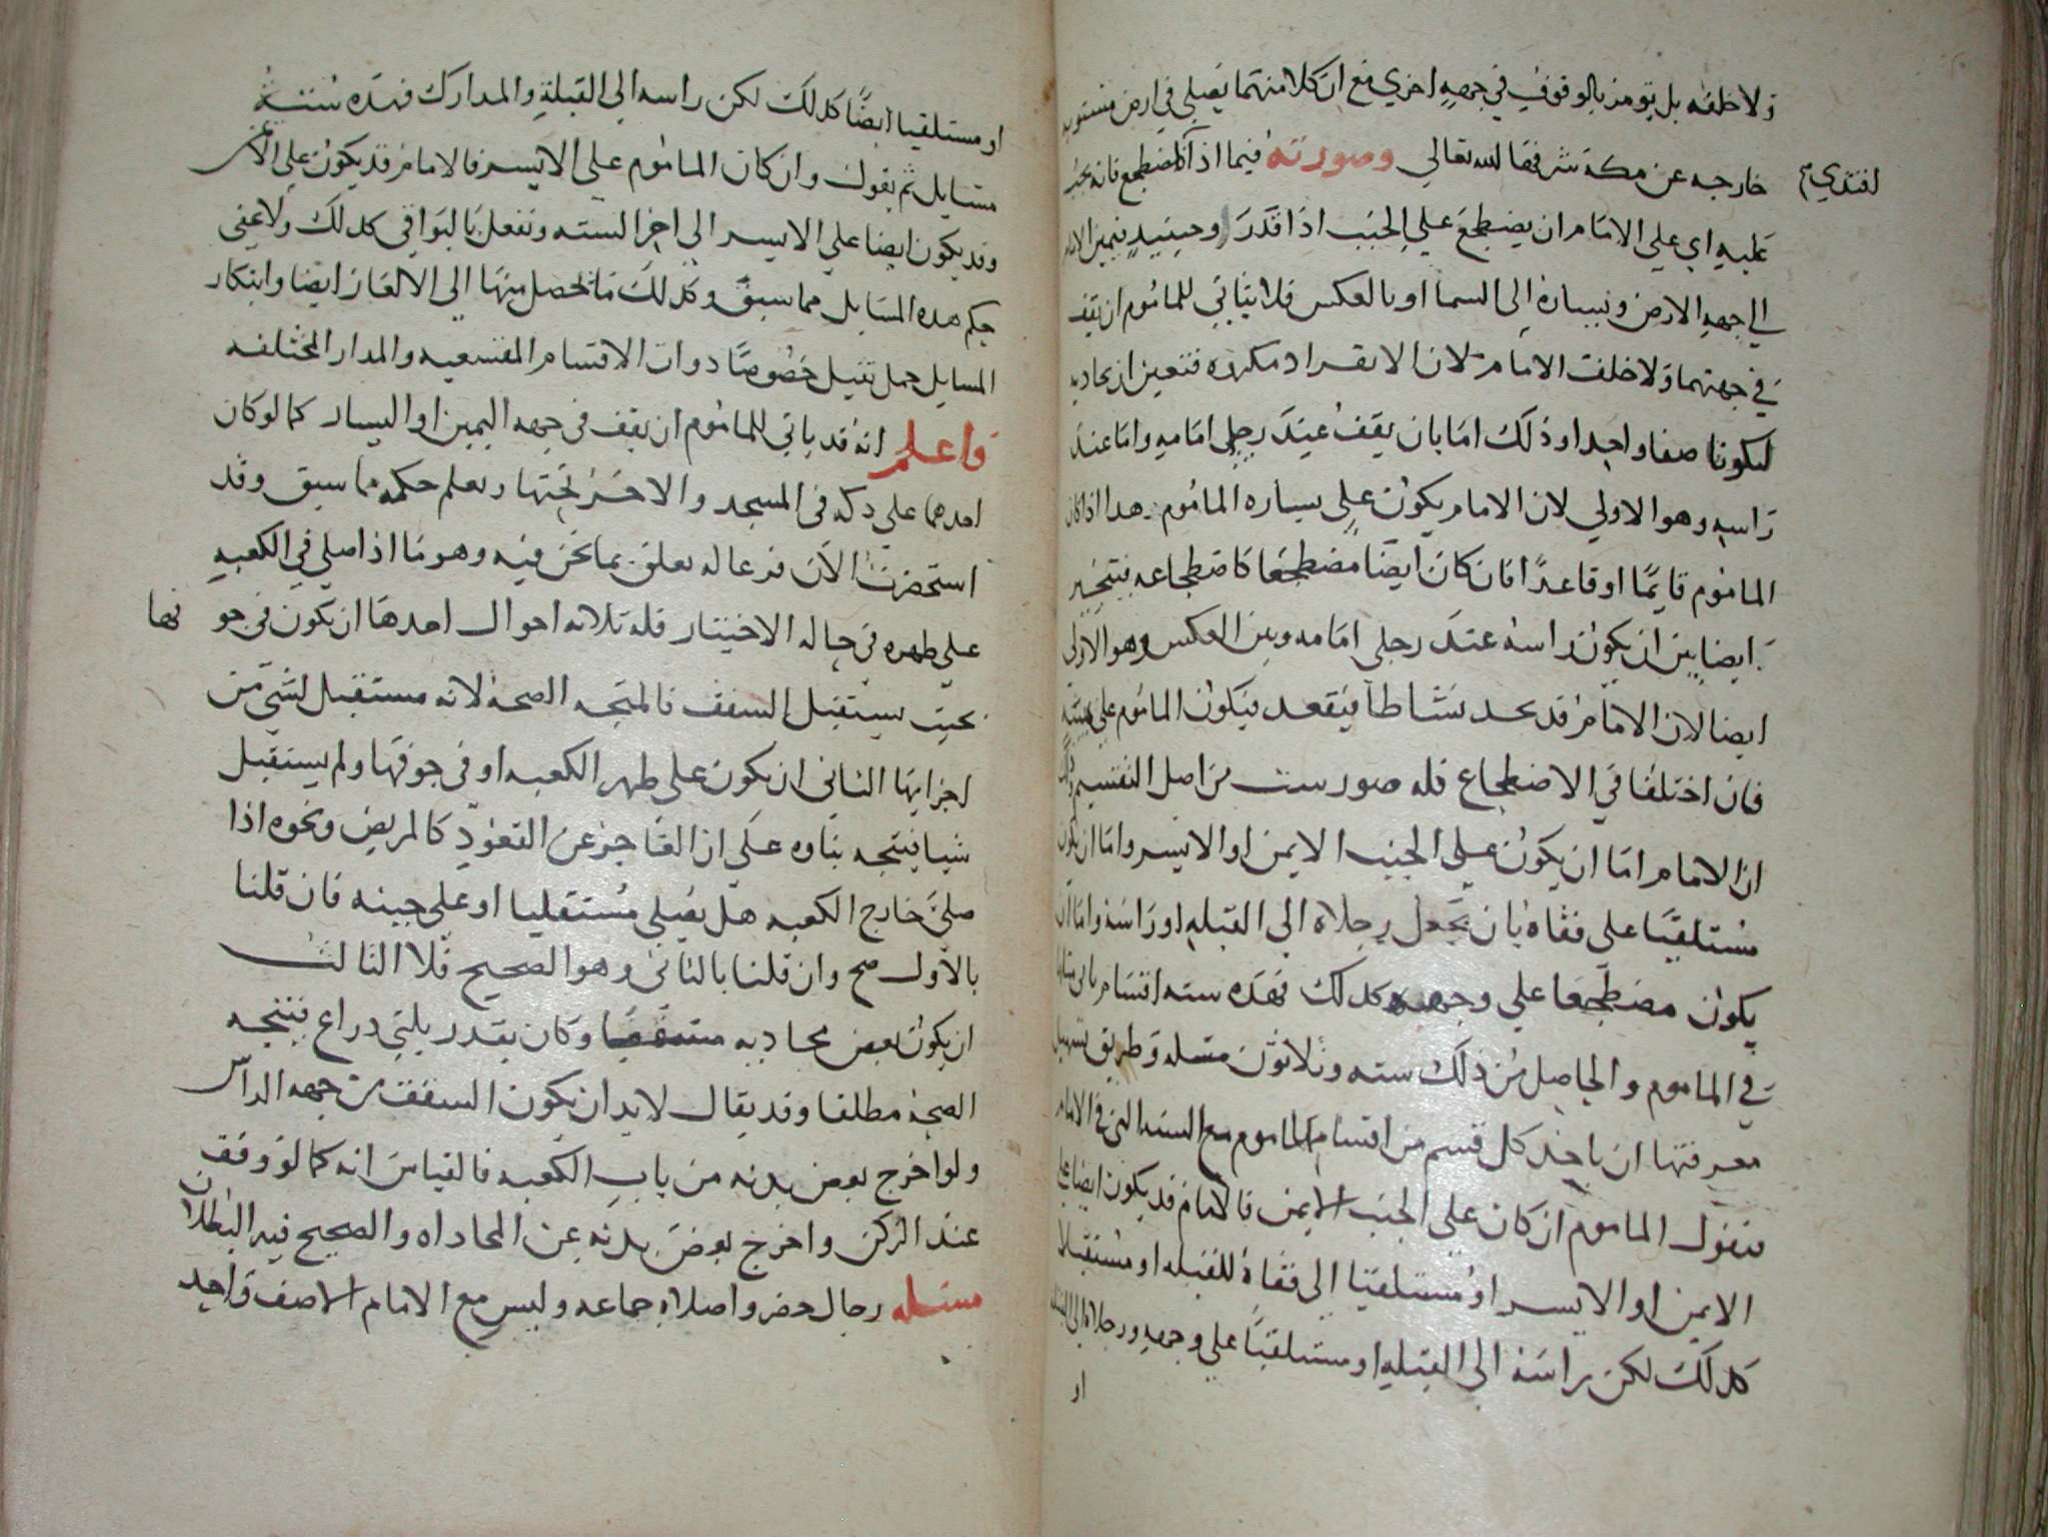 ولا خلفه بل يؤمر بالوقوف في جهة اخري مع ان كلا منهما يصلي في ارض مستويه
خارجه عن مكة شرفها الله تعالي وصورته فيما اذا بالمضطجع فانه يجب
اقتدي
عليه اي علي الامام ان يضطجع علي الجنب اذا قدر وحينيذ فيمين الامام
الي جهة الارض ويساره الي السما او بالعكس فلا يتاتي للماموم ان يقف
في جهتهما ولا خلف الامام لان الانفراد مكروه فتعين ان يحاديه
ليكونا صفا واحدا وذلك اما بان يقف عند رجلي امامه واما عند
راسه وهو الاولي لان الامام يكون علي يساره الماموم هدا اذا كان
الماموم قايما او قاعدا فان كان ايضا مضطجعا كاضطجاعه فيتخير
ايضا بين ان يكون راسه عند رجلي امامه وبين العكس وهو الاولي
ايضا لان الامام قد يجد نشاطا فيقعد فيكون الماموم علي يمينه
فان اختلفا في الاضطجاع فله صور ست من اصل التقسيم وذلك
ان الامام اما ان يكون علي الجنب الايمن او الايسر واما ان يكون
مستلقيا علي قفاه بان تجعل رجلاه الي القبله او راسه واما ان
يكون مضطجعا علي وجهه كدلك فهده سته اقسام ياتي مثلها
في الماموم والحاصل من ذلك سته وثلاثون مسله وطريق تسهيل
معرفتها ان ياخد كل قسم من اقسام الماموم مع السته التي في الامام
فتقول الماموم ان كان علي الجنب الايمن فالامام قد يكون ايضا علي
الايمن او الايسر او مستلقيا الي قفاه للقبله او مستقبلا
كدلك لكن راسه الي القبله او مستلقيا علي وجهه ورجلاه الي القبله
او
او مستلقيا ايضا كدلك لكن راسه الي القبلة والمدارك فهده ستة
مسايل ثم يقول وان كان الماموم علي الايسر فالامام قد يكون علي الايمن
وقد يكون ايضا علي الايسر الي اخر السته وتفعل بالبواقي كدلك ولا يخفي
حكم هده المسايل مما سبق وكدلك ما يحصل منها الي الالغاز ايضا وابتكار
المسايل جمل خصوصا دوات الاقسام المتسعه والمدارك المختلفه
واعلم انه قد ياتي للماموم ان يقف في جهه اليمين او اليسار كما لو كان
احدهما علي دكه في المسجد والاخر تحتها ويعلم حكمه مما سبق وقد
استحضرت الان فرعا له تعلق بما نحن فيه وهو ما اذا صلي في الكعبه
علي ظهره في حاله الاختيار فله ثلاثه احوال احدها ان يكون في جو
فها
بحيث يستقبل السقف فالمتجه الصحه لانه مستقبل لشي من
اجزايها الثاني ان يكون علي ظهر الكعبه او في جوفها ولم يستقبل
شيا فيتجه بناوه علي ان العاجز عن القعود كالمريض ونحوه اذا
صلي خارج الكعبه هل يصلي مستقليا او علي جنبه فان قلنا
بالاول صح وان قلنا بالثاني وهو الصحيح فلا الثالث
ان يكون بعض محاديه مسقفا وكان بقدر ثلثي دراع فيتجه
الصحه مطلقا وقد يقال لابد ان يكون السقف من جهه الراس
ولو اخرج بعض بدنه من باب الكعبه فالقياس انه كما لو وقف
عند الركن واخرج بعض بدنه عن المحاداه والصحيح فيه البطلان
مسله رجال حضروا صلاة جماعه وليس مع الامام الا صف واحد